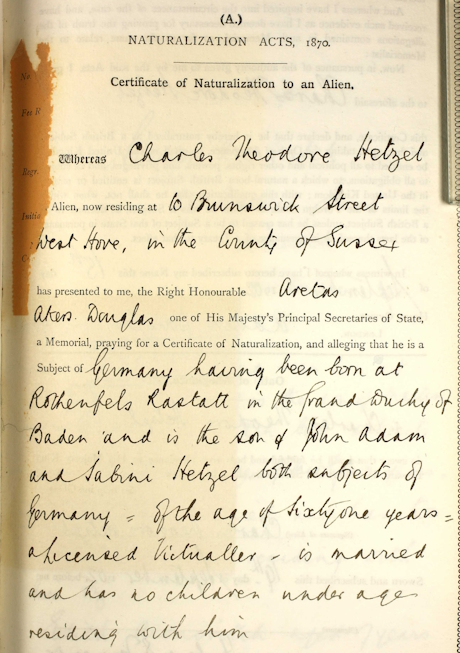 (A.)
NATURALIZATION ACTS, 1870.
Certificate of Naturalization to an Alien.
No
For R
Whereas Charles Theodore Hetzel
Regr.
Alien, now residing at 10 Brunswick Street
Initia
West Hove, in the County of Sussex
has presented to me, the Right Honourable Aretas
Akers. Douglas one of His Majesty's Principal Secretaries of State,
a Memorial, praying for a Certificate of Naturalization, and alleging that he is a
Subject of Germany having been born at
Rothenfels Rastatt in the Grand Duchy of
Baden and is the son of John Adam
and Sabini Hetzel both subjects of
Germany = of the age of Sixty one years =
a Licensed Victualler - is married
and has no children under age
residing with him